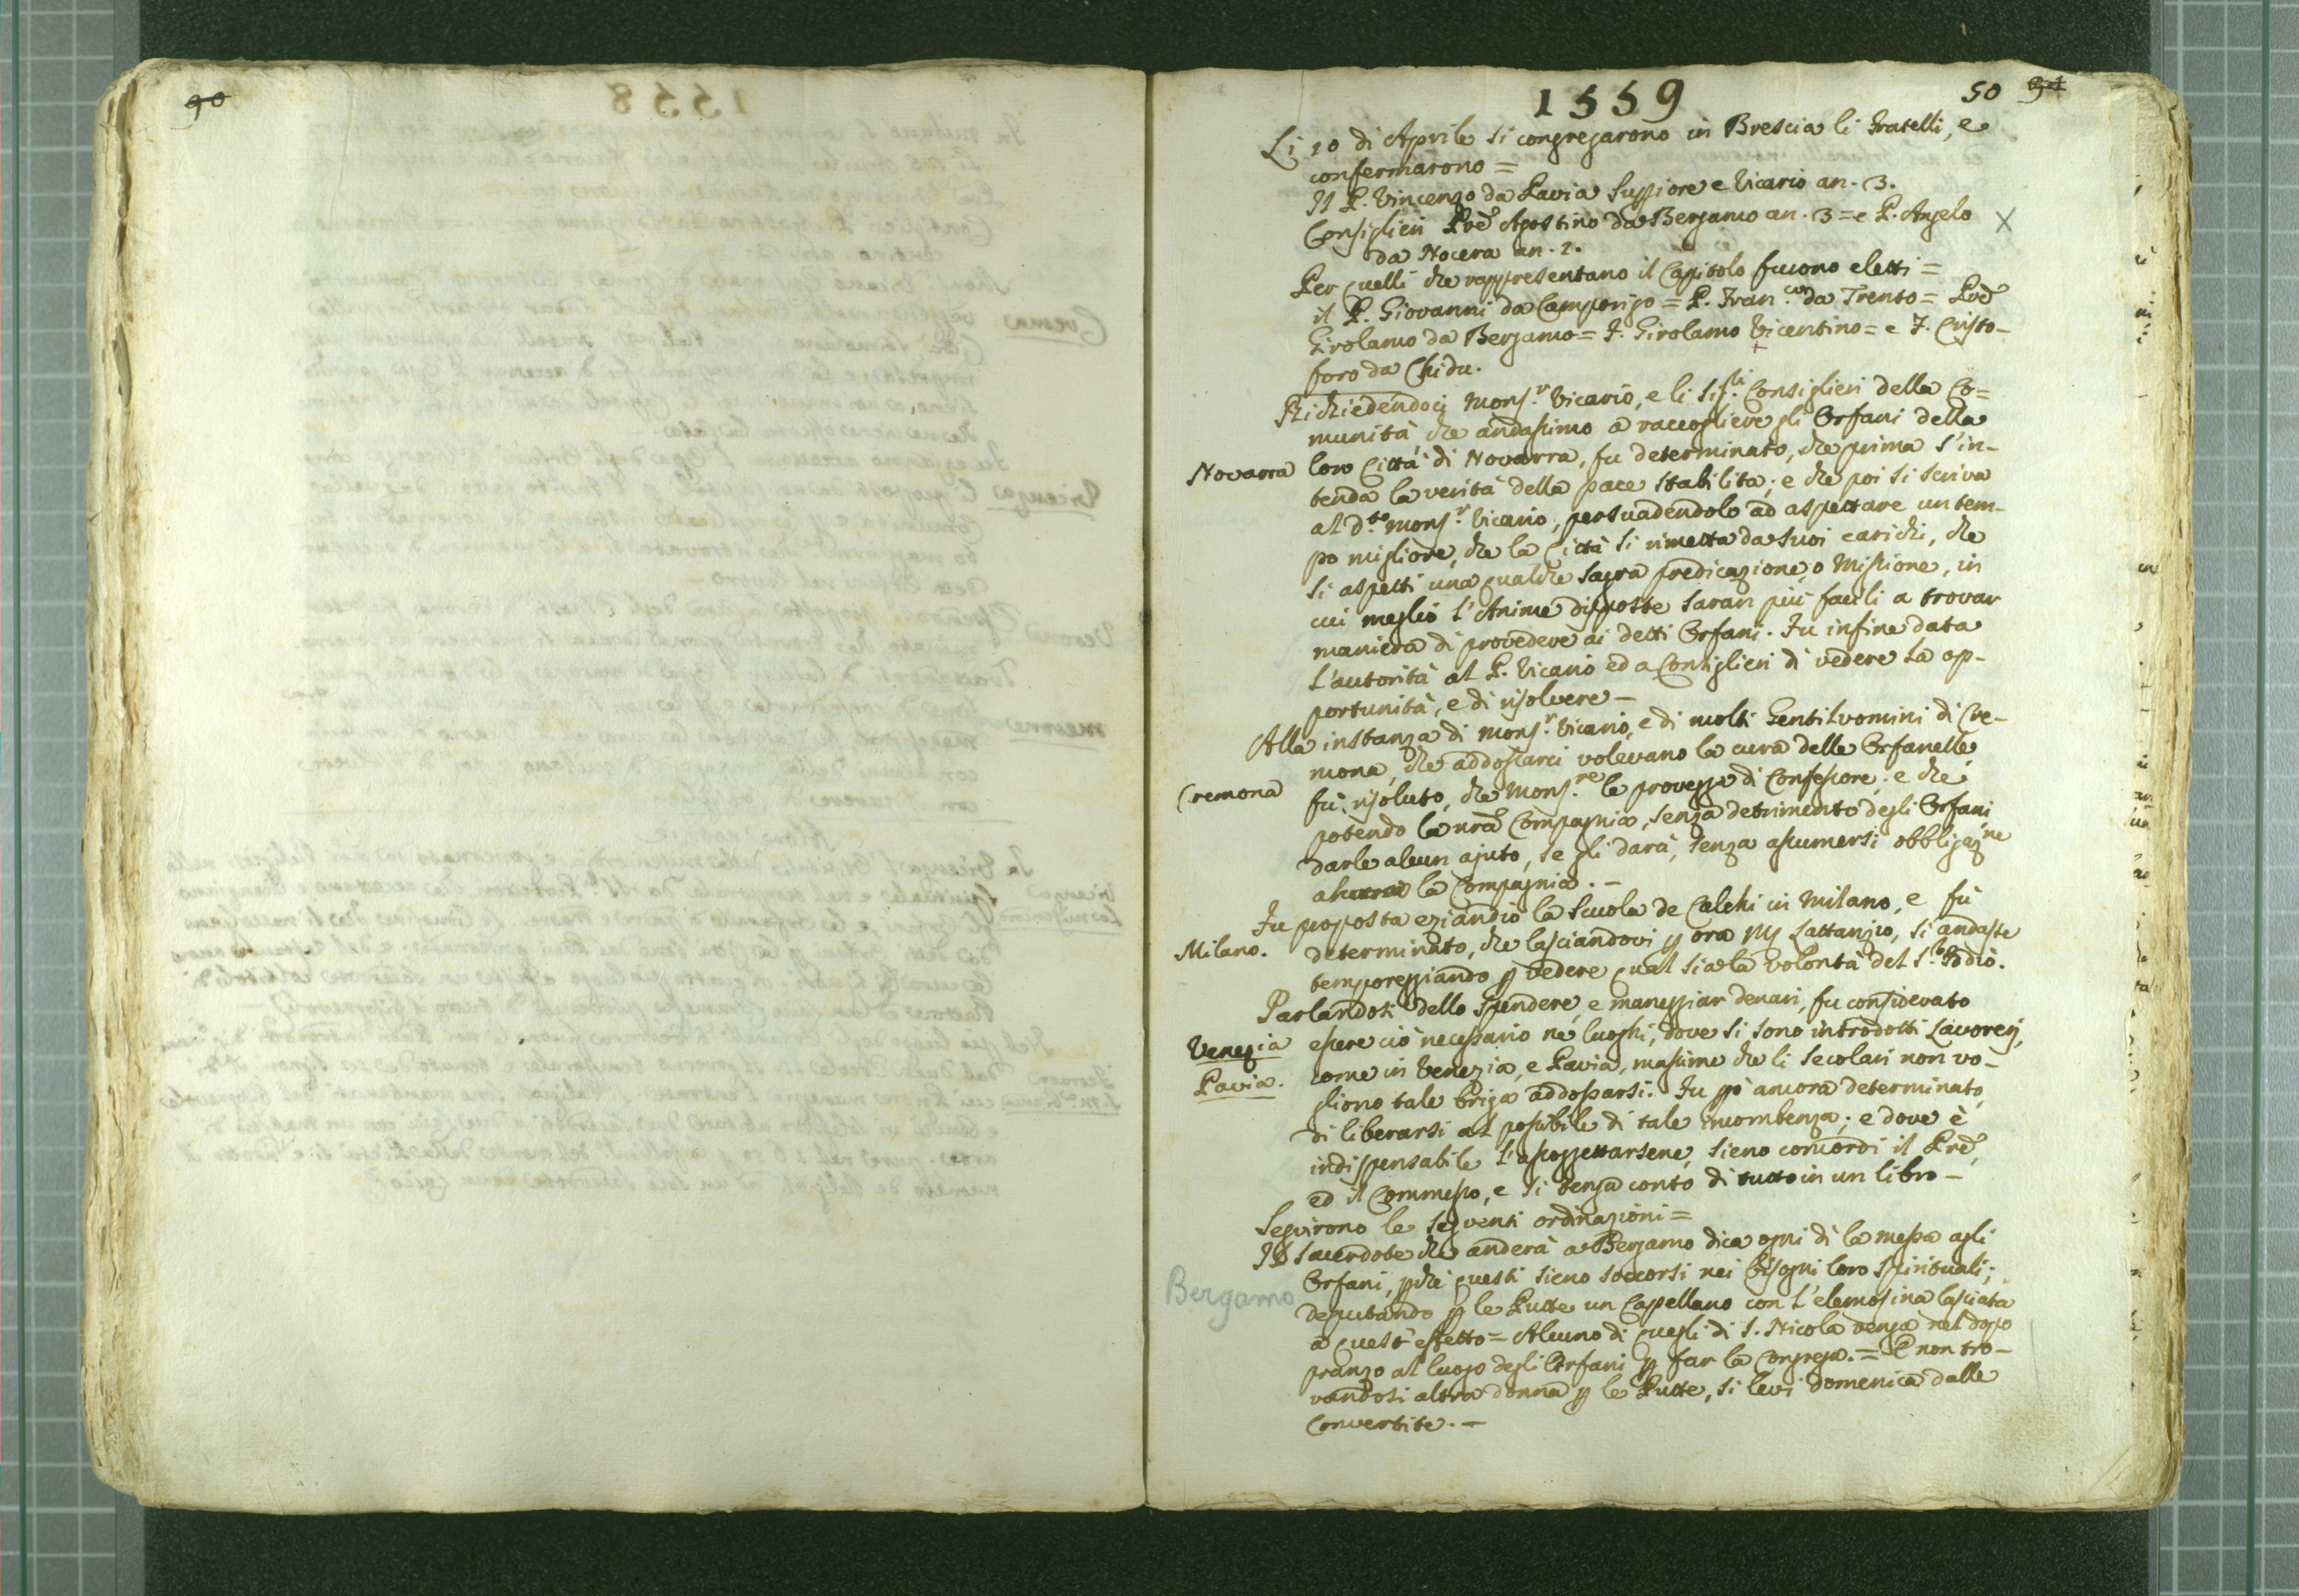 90
1559
50 91
Li 10 di Aprile si congregarono in Brescia li Fratelli, e
confermarono =
Il P. Vincenzo da Pavia Suppiore e Vicario an. 3.
Consiglieri Prē Agostino da Bergamo an. 3 = e P. Angelo X
da Nocera an. 2.
Per quelli che rappresentano il Capitolo furono eletti =
il P. Giovanni da Camporijo = P. Fran.co da Trento = Prē
Girolamo da Bergamo = F. Girolamo Vicentino = e F. Cristo-
foro da Chidu.
Richiedendoci Mons.r Vicario, e li Sig.li Consiglieri della Co=
munità che andassimo a raccogliere gli Orfani della
Novarra loro Città di Novarra, fu determinato, che prima s'in-
tenda la verità della pace stabilita; e che poi si scriva
al d.to Mons.r Vicario, persuadendolo ad aspettare un tem-
po migliore, che la Città si rimetta da suoi carichi, che
si aspetti una qualche sagra predicazione, o Missione, in
cui meglio l'Anime disposte saran più facili a trovar
maniera di provedere ai detti Orfani. Fu infine data
l'autorità al P. Vicario ed a Consiglieri di vedere la op-
portunità, e di risolvere –
Alla instanza di Mons.r Vicario, e di molti Gentiluomini di Cre-
mona, che addossarci volevano la cura delle Orfanelle
Cremona fù risoluto, che Mons.re le provegga di Confessore; e che
potendo la nrā Compagnia, senza detrimento degli Orfani
darle alcun ajuto, se gli darà, senza assumersi obbligaz.ne
la Compagnia. –
Fu proposta eziandio la Scuola de Calchi in Milano, e fù
Milano. determinato, che lasciandovi p ora Lattanzio, si andasse
temporeggiando p vedere qual sia la volontà del S. Iddio.
Parlandosi dello spendere, e maneggiar denari, fu considerato
Venezia essere ciò necessario ne luoghi, dove si sono introdotti Lavorerj,
Pavia. come in Venezia, e Pavia, massime che li secolari non vo-
gliono tale briga addossarsi. Fu pò ancora determinato,
di liberarsi al possibile di tale incombenza; e dove è
indispensabile l' sieno concordi il Prē,
ed il Commesso, e si tenga conto di tutto in un libro –
Seguirono le seguenti ordinazioni =
Il Sacerdote che anderà a Bergamo dica ogni dì la messa agli
Orfani, pchè questi sieno soccorsi nei bisogni loro spirituali;
Bergamo deputando p le Putte un Capellano con l'elemosina lasciata
a quest'effetto = Alcuno di quegli di S. Nicola venga nel dopo
pranzo al luogo degli Orfani p far la Congrega. = E non tro-
vandosi altra donna p le Putte, si levi Domenica dalle
Convertite. –